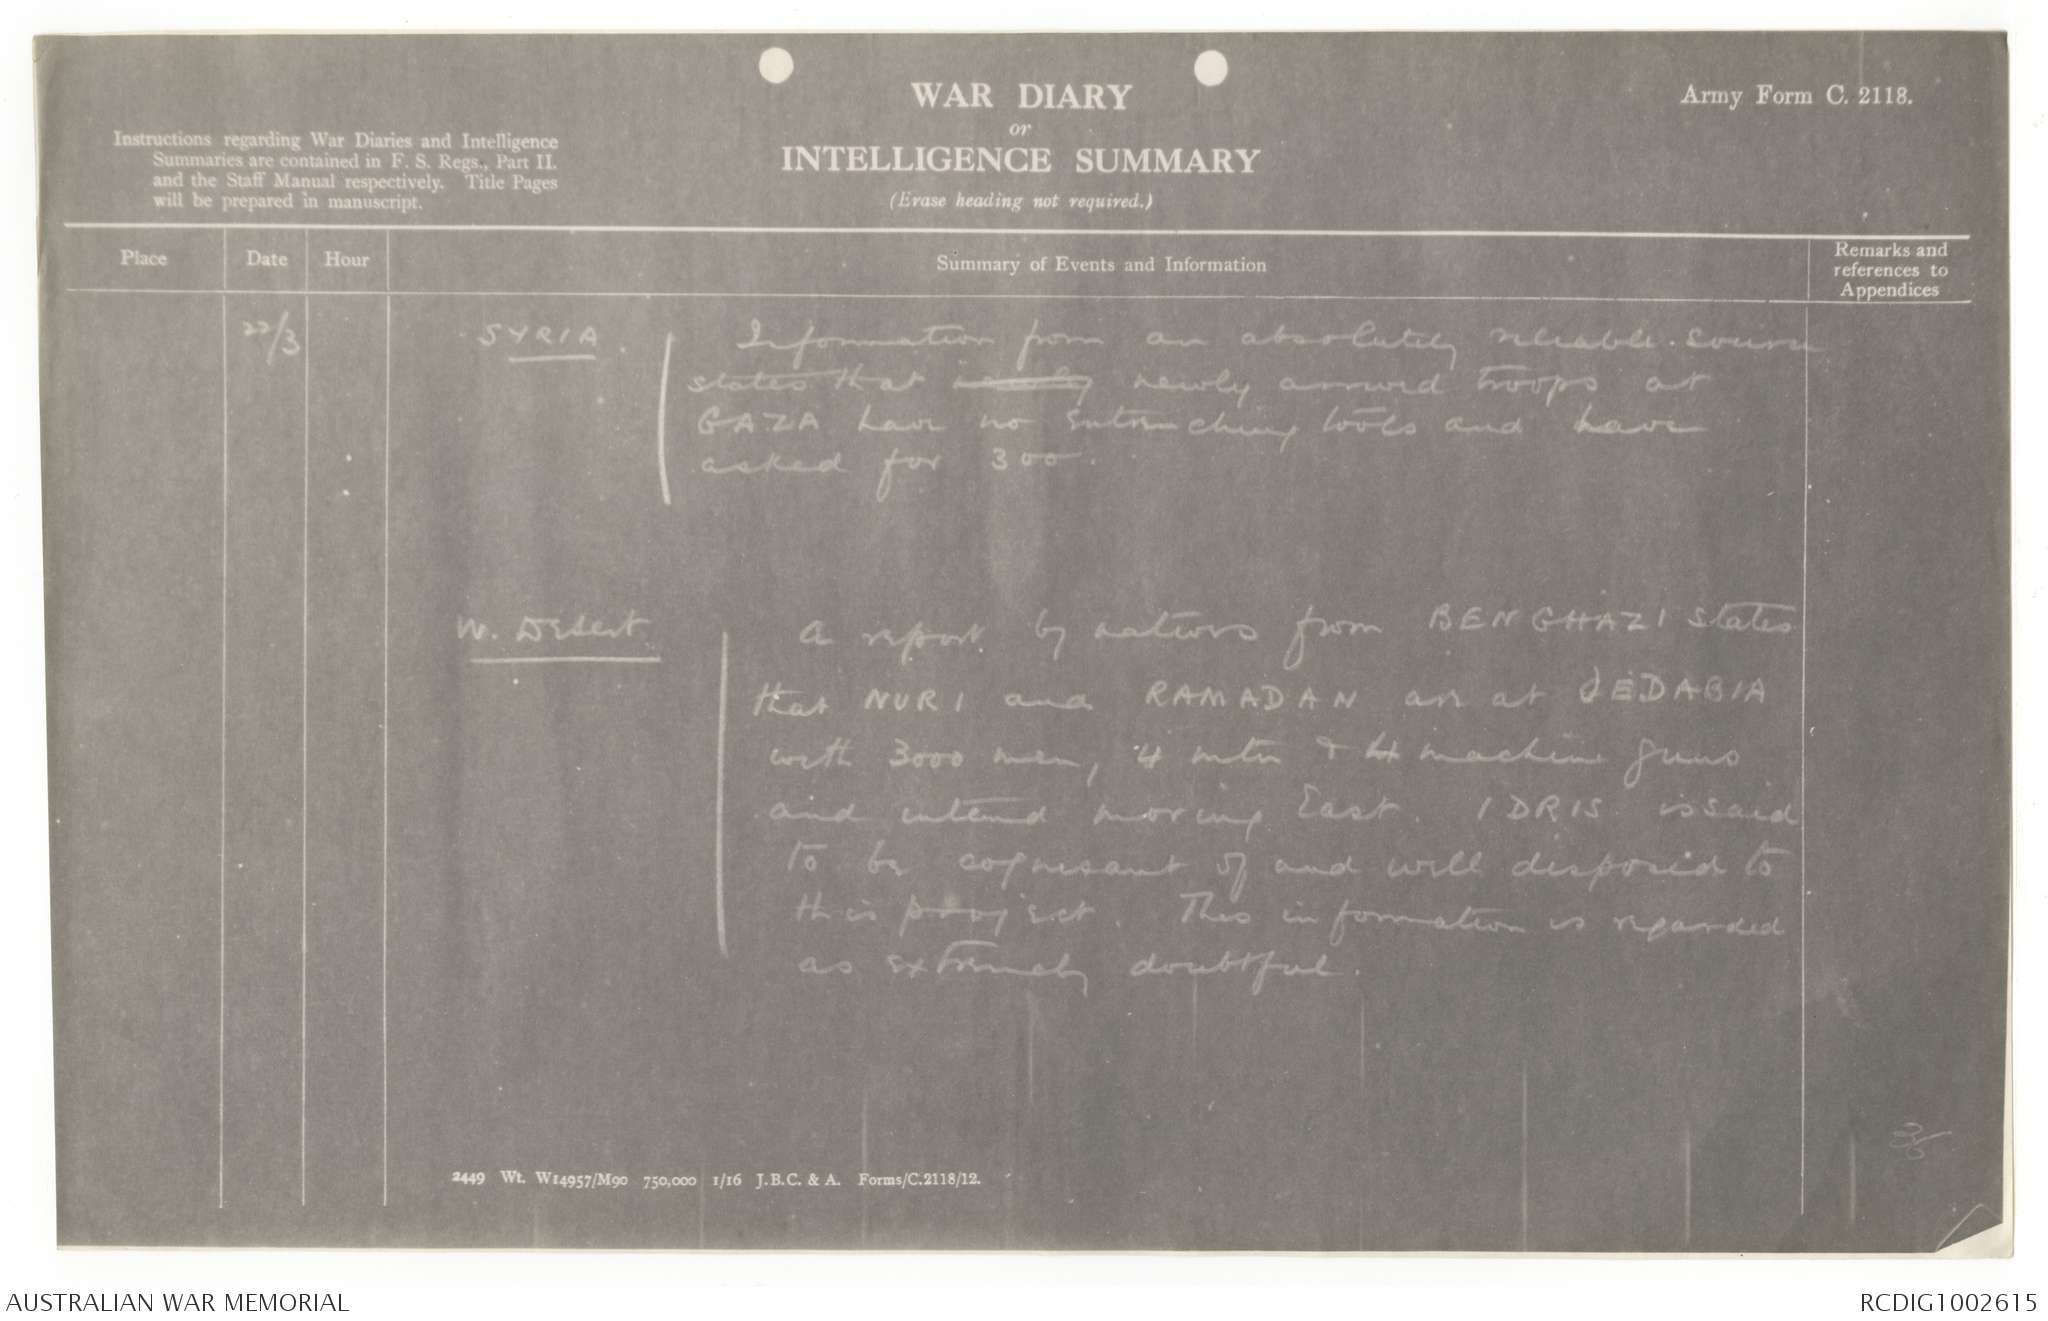 WAR DIARY
or
INTELLIGENCE SUMMARY
(Erase heading not required.)
Army Form C. 2118.
Instructions regarding War Diaries and Intelligence
Summaries are contained in F. S. Regs., Part II.
and the Staff Manual respectively. Title Pages
will be prepared in manuscript.
Place
Date
Hour
Summary of Events and Information
Remarks and
references to
Appendices
22/3
SYRIA.
Information from an absolutely reliable source
states that newly arrived troops at
GAZA have no entrenching tools and have
asked for 300.
W. Desert
A report by natives from BENGHAZI states
that NURI and RAMADAN are at JEDABIA
with 3000 men, 4 mtn & 4 machine guns
and intend moving East. IDRIS is said
to be cognisant of and well disposed to
this project. This information is regarded
as extremely doubtful.
2449 Wt. W14957/M90 750,000 1/16 J.B.C. & A. Forms/C.2118/12.
AUSTRALIAN WAR MEMORIAL
RCDIG1002615